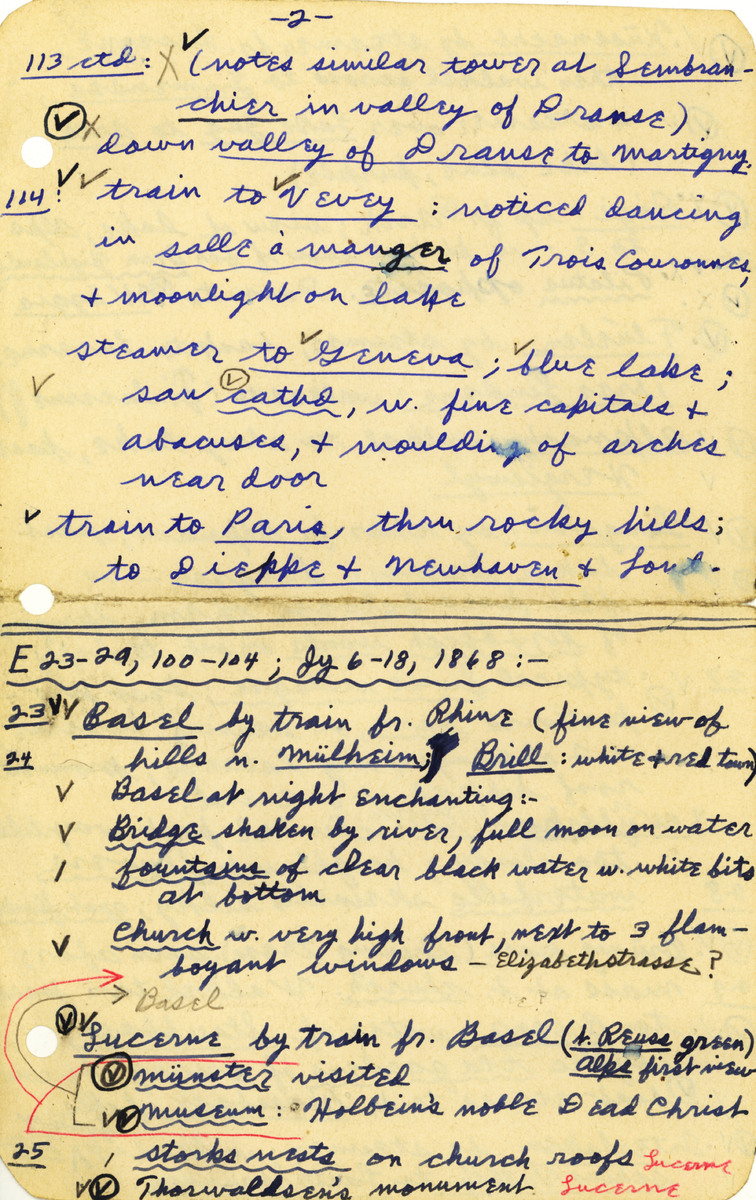 -2-
113 ctd: X ✓ (notes similar tower at Sembran-
chier in valley of Dranse)
✓ X down valley of Dranse to Martigny.
114: ✓ ✓ train to ✓ Vevey : noticed dancing
in salle à manger of Trois Couronnes,
+ moonlight on lake
steamer to ✓ Geneva ; ✓ blue lake ;
✓ saw ✓ cathd, w. fine capitals +
abacuses, + moulding of arches
near door
✓ train to Paris, thru rocky hills;
to Dieppe + Newhaven + Lond.
E 23-29, 100-104 ; Jy 6-18, 1868 :-
23 ✓✓ Basel by train fr. Rhine (fine view of
24 hills n. Mülheim; Brill : white + red town)
✓ Basel at night enchanting:-
✓ Bridge shaken by river, full moon on water
/ fountains of clear black water w. white bits
at bottom
✓ Church w. very high front, next to 3 flam-
boyant windows - Elizabethstrasse ?
Basel e?
✓✓ Lucerne by train fr. Basel (h. Reuss green)
Alps first view
✓ münster visited
✓✓ museum : Holbein's noble Dead Christ
25 / storks nests on church roofs Lucerne
✓✓ Thorwaldsen's monument Lucerne